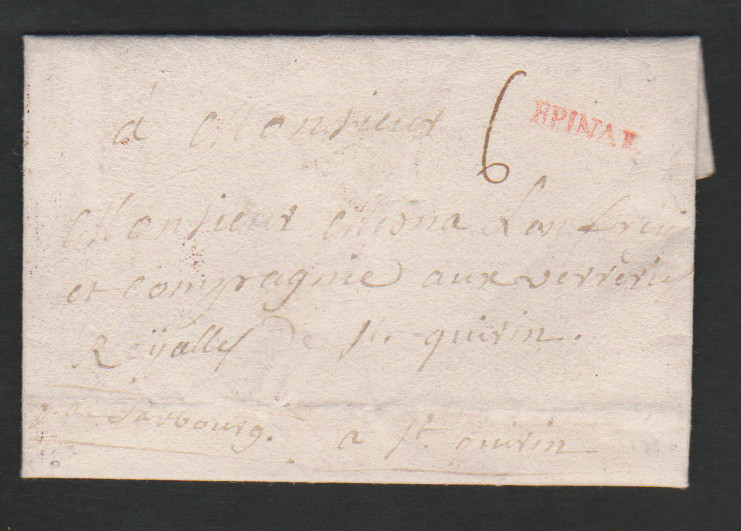 à Monsieur
6
EPINAL
Monsieur
et compagnie aux verrerie
Royalles de St. quirin.
Sarbourg. a St. quirin